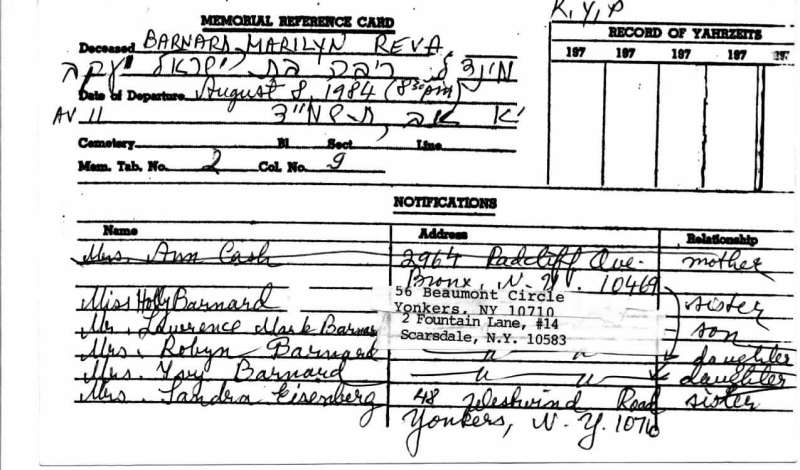 K, Y, P
MEMORIAL REFERENCE CARD
RECORD OF YAHRZEITS
Deceased BARNARD, MARILYN REVA
197 197 197 197 197
רבקה בת ישראל יעקב
Date of Departure August 8, 1984 (8:30pm)
AV 11 יא אב, תשמ"ד
Cemetery Bl Sect Line
Mem. Tab. No. 2 Col. No. 9
NOTIFICATIONS
Name Address Relationship
Mrs. Ann Cash 2964 Radcliff Ave. mother
Bronx, N.Y. 10469
56 Beaumont Circle
Miss Holly Barnard Yonkers, NY 10710 sister
2 Fountain Lane, #14
Mr. Lawrence Mark Barnard Scarsdale, N.Y. 10583 son
Mrs. Robyn Barnard " " daughter
Mrs. Barnard " " daughter
Mrs. Sandra Eisenberg 48 Westwind Road sister
Yonkers, N.Y. 1070